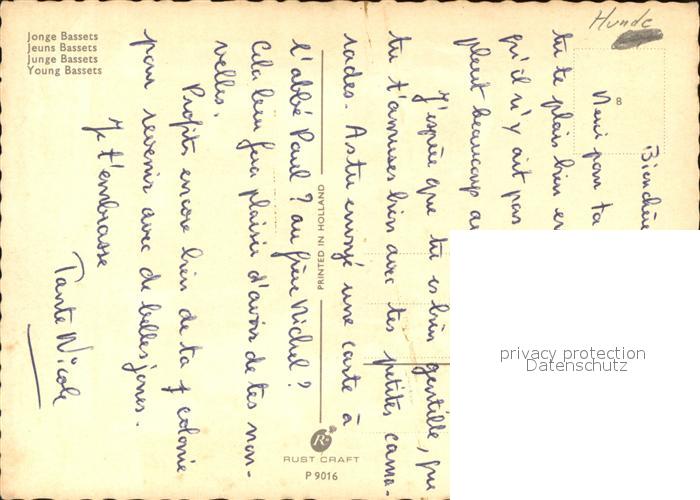 Jonge Bassets
Jeuns Bassets
Junge Bassets
Young Bassets
Hunde
8
Bien chère
Merci pour ta
tu te plais bien en
qu'il n'y ait pas
pleut beaucoup
J'espère que tu es bien gentille, que
tu t'amuses bien avec tes petites cama-
rades. As tu envoyé une carte à
l'abbé Paul ? au frère Michel ?
Cela leur fera plaisir d'avoir de tes nou-
velles.
Profites encore bien de ta colonie
pour revenir avec de belles joues.
Je t'embrasse
Tante Nicole
PRINTED IN HOLLAND
R
RUST CRAFT
P 9016
privacy protection
Datenschutz